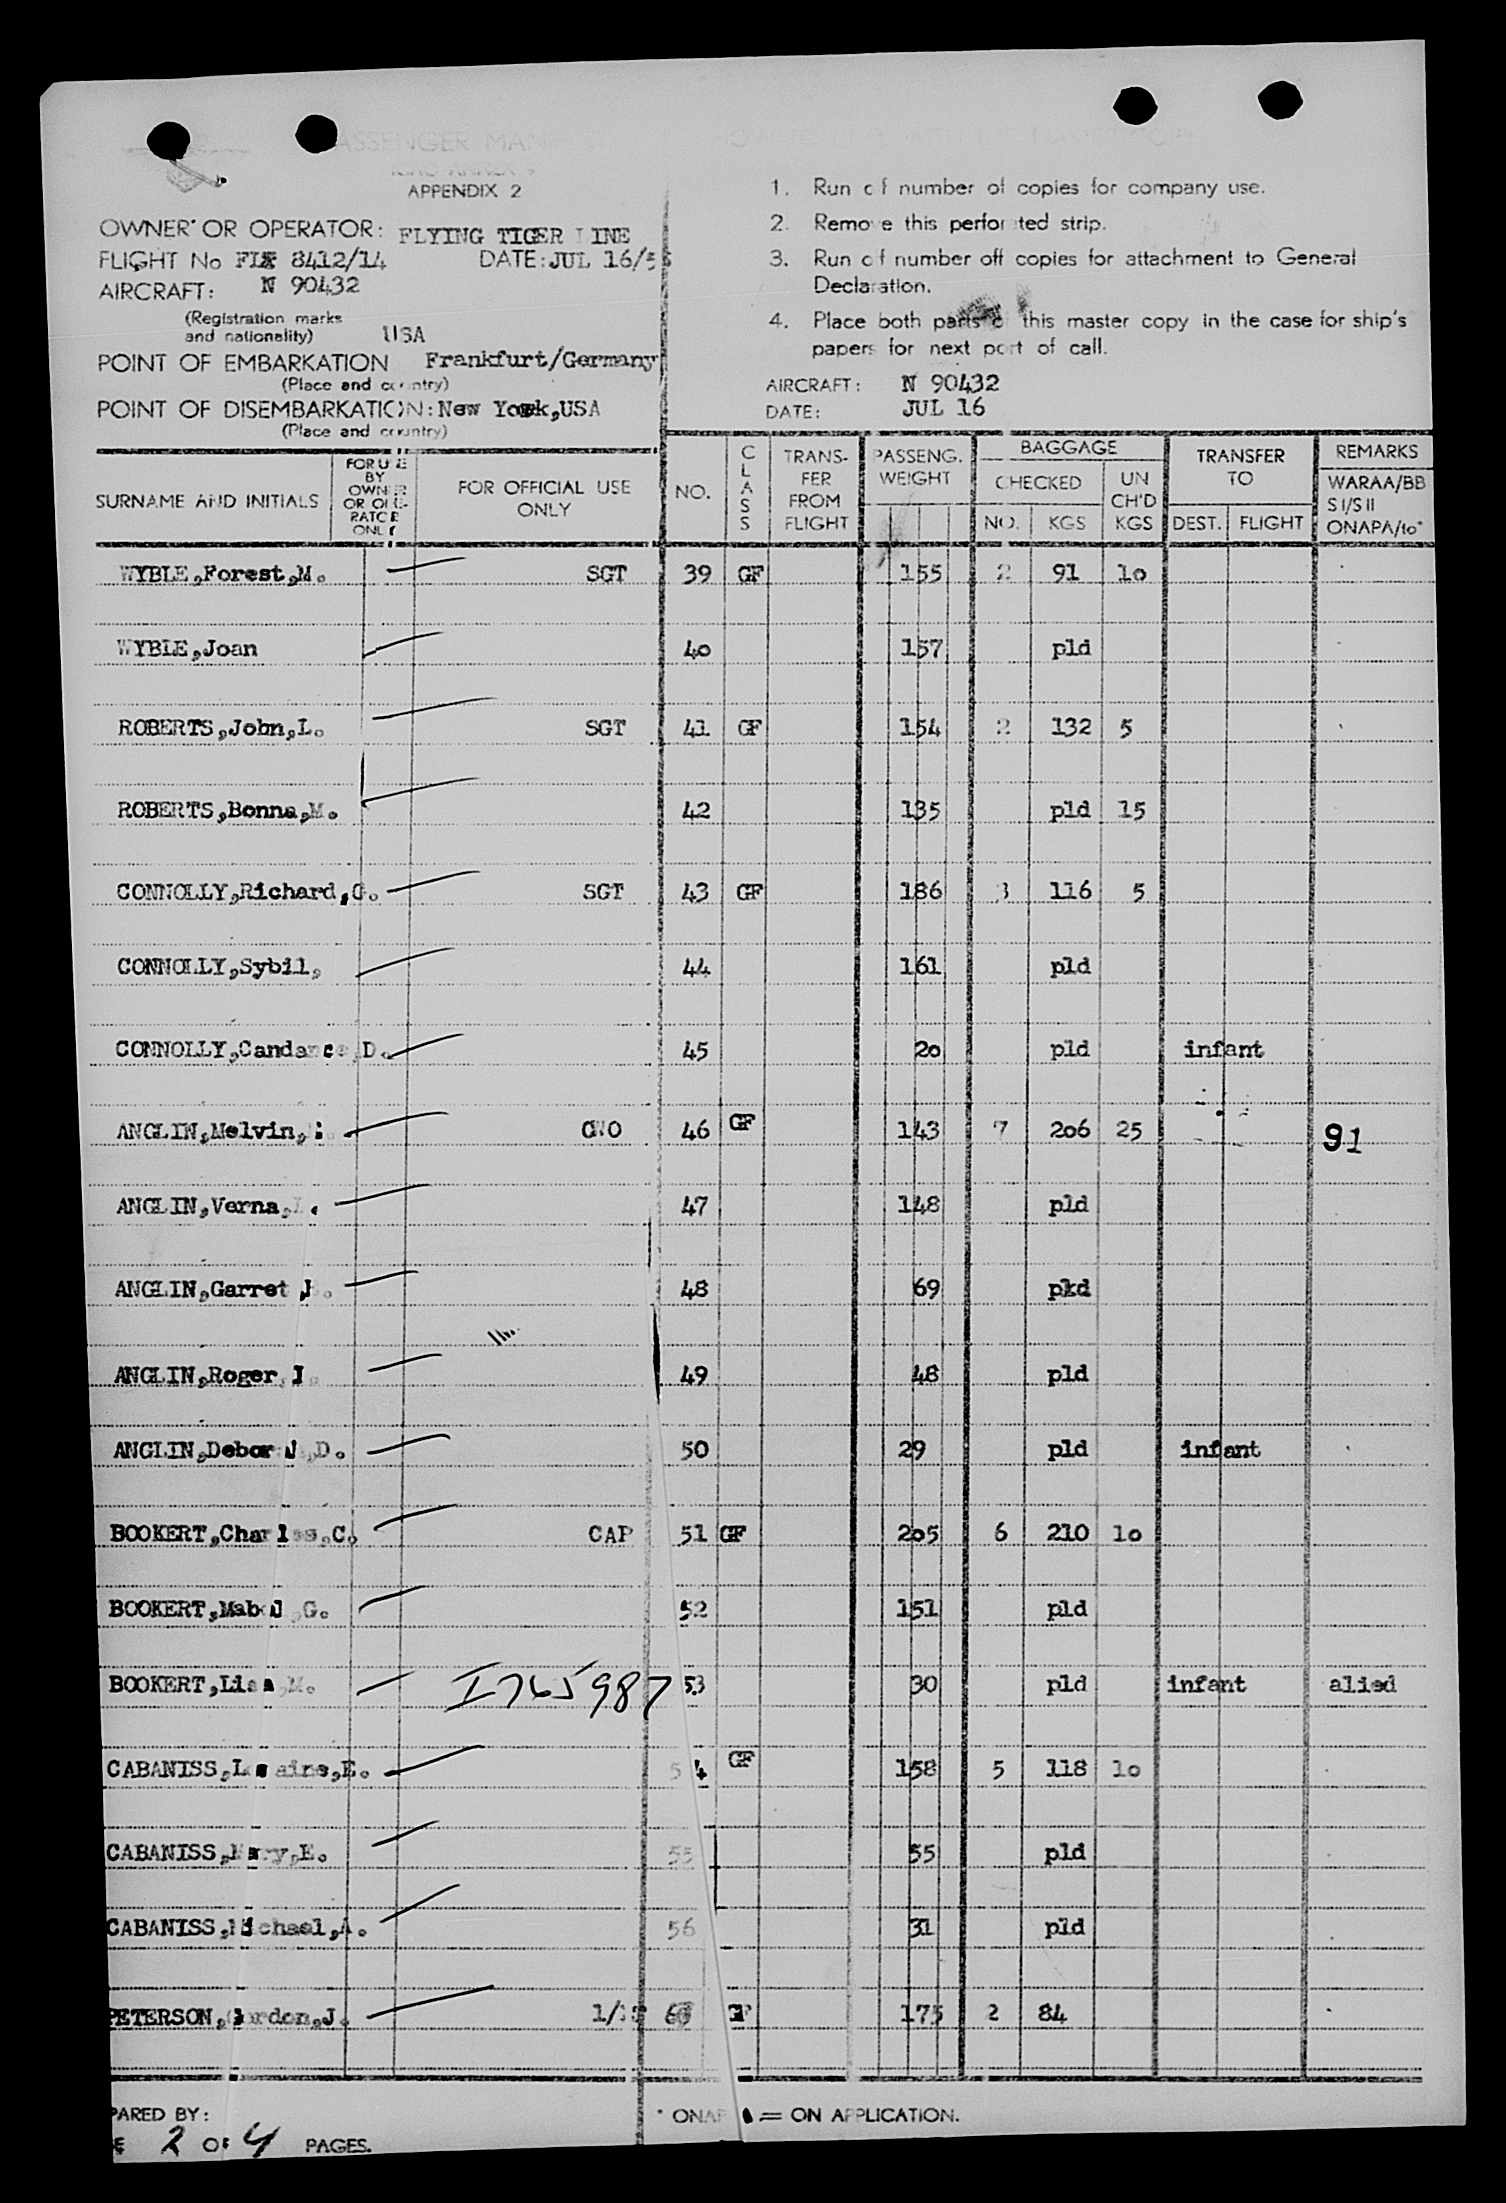 PASSENGER MAN
APPENDIX 2
OWNER OR OPERATOR: FLYING TIGER LINE
FLIGHT No 8412/14 DATE: JUL 16/56
AIRCRAFT: N 90432
(Registration marks
and nationality) USA
POINT OF EMBARKATION Frankfurt/Germany
(Place and country)
POINT OF DISEMBARKATION: New York,USA
(Place and country)
1. Run off number of copies for company use.
2. Remove this perforated strip.
3. Run off number off copies for attachment to General
Declaration.
4. Place both parts of this master copy in the case for ship's
papers for next port of call.
AIRCRAFT: N 90432
DATE: JUL 16
SURNAME AND INITIALS
FOR USE
BY
OWNER
OR OPE-
RATOR
ONLY
FOR OFFICIAL USE
ONLY
NO.
CLASS
TRANS-
FER
FROM
FLIGHT
PASSENG.
WEIGHT
BAGGAGE
CHECKED
NO. KGS
UN
CH'D
KGS
TRANSFER
TO
DEST. FLIGHT
REMARKS
WARAA/BB
S I/S II
ONAPA/to*
WYBLE,Forest,M. SGT 39 GF 155 2 91 10
WYBLE,Joan 40 157 pld
ROBERTS,John,L. SGT 41 GF 154 2 132 5
ROBERTS,Bonna,M. 42 135 pld 15
CONNOLLY,Richard,G. SGT 43 GF 186 3 116 5
CONNOLLY,Sybil, 44 161 pld
CONNOLLY,Candance,D. 45 20 pld infant
ANGLIN,Melvin, CWO 46 GF 143 7 206 25 91
ANGLIN,Verna, 47 148 pld
ANGLIN,Garret 48 69 pkd
ANGLIN,Roger 49 48 pld
ANGLIN,Deborah,D. 50 29 pld infant
BOOKERT,Charles,C. CAP 51 GF 205 6 210 10
BOOKERT,Mabel,G. 52 151 pld
BOOKERT,Lisa,M. I765987 53 30 pld infant alied
CABANISS,Loraine,E. 54 GF 158 5 118 10
CABANISS,Mary,E. 55 55 pld
CABANISS,Michael,A. 56 31 pld
PETERSON,Gordon,J. GF 175 2 84
PARED BY:
2 OF 4 PAGES.
* ONAPA = ON APPLICATION.